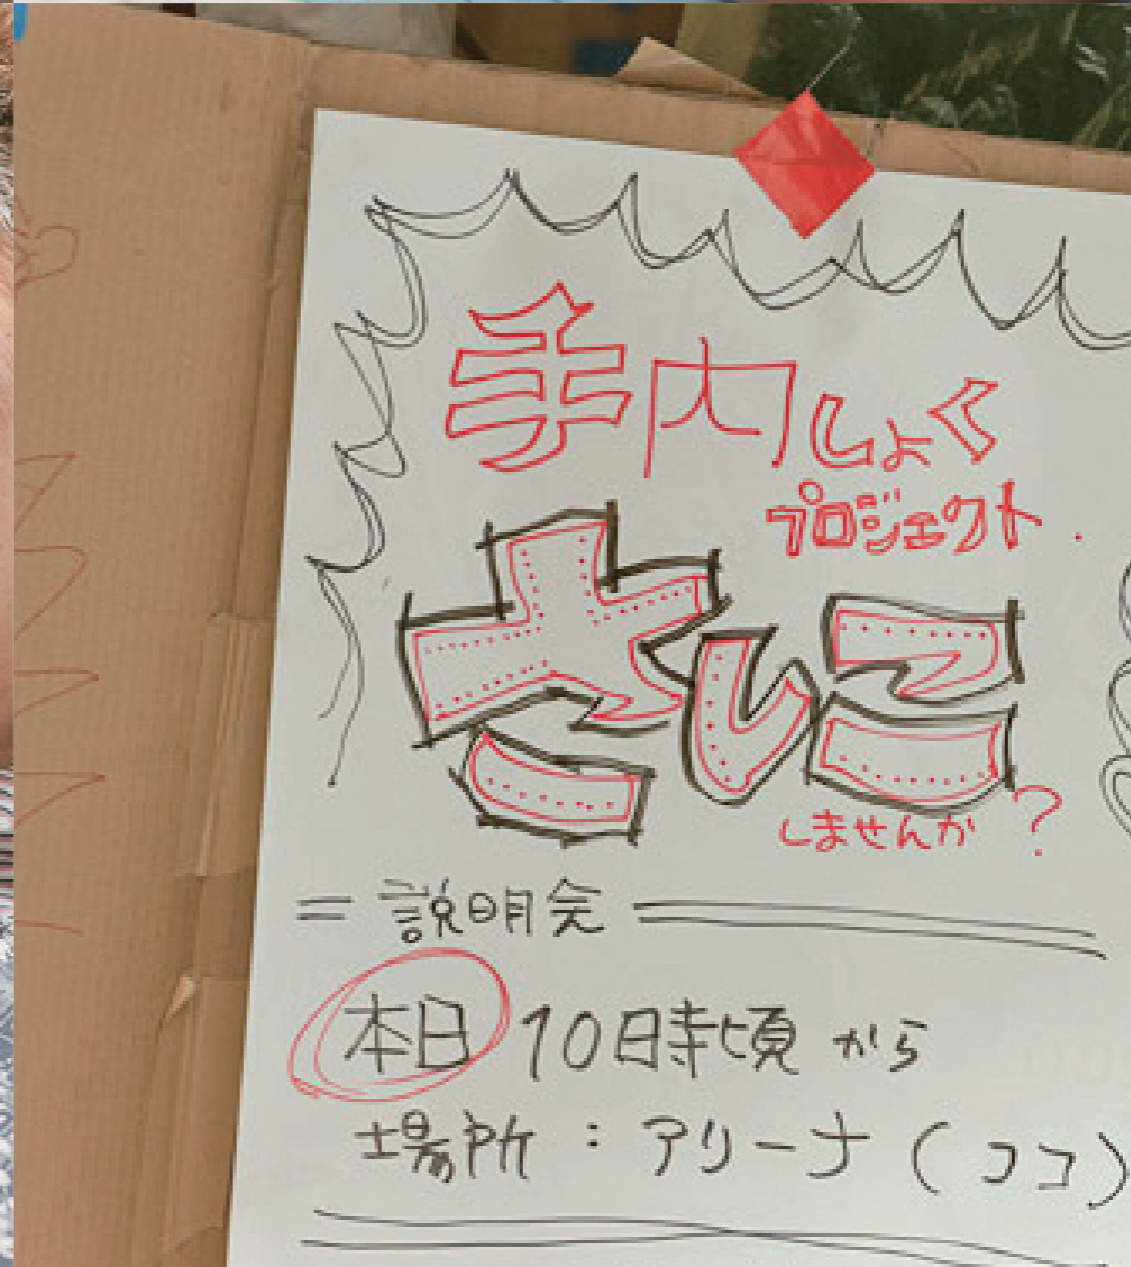 手内しょく
プロジェクト
さしこ
しませんか？
説明会
本日 10時頃から
場所：アリーナ（ココ）